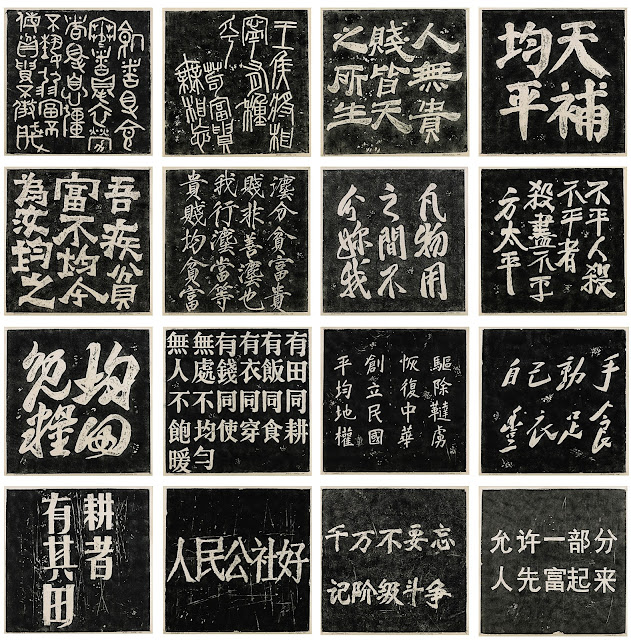 王侯將相
寧有種
乎
苟富貴
無相忘
人無貴
賤皆天
之所生
天補
均平
吾疾貧
富不均今
為汝均之
灋分貧富貴
賤非善灋也
我行灋當等
貴賤均貧富
凡物用
之間不
分妳我
不平人殺
不平者
殺盡不平
方太平
均田
免糧
有田同耕
有飯同食
有衣同穿
有錢同使
無處不均勻
無人不飽暖
驅除韃虜
恢復中華
創立民國
平均地權
自己動手
豐衣足食
耕者
有其田
人民公社好
千万不要忘
记阶级斗争
允许一部分
人先富起来